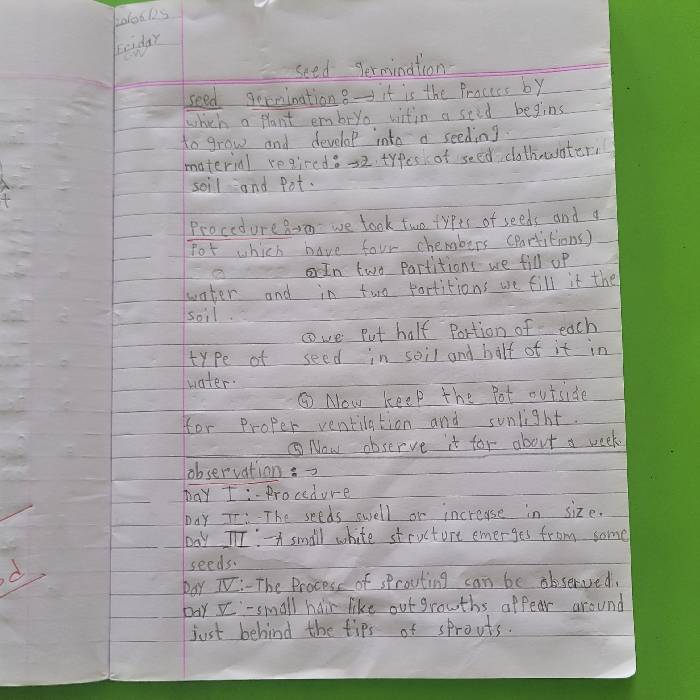 20/06/25
Friday
seed germination
seed germination:→ it is the process by
which a plant embryo witin a seed begins
to grow and develop into a seeding.
material regired:→2 types of seed, cloth, water,
soil and pot.
Procedure:→① we took two types of seeds and a
pot which have four chembers (partitions)
② In two partitions we fill up
water and in two partitions we fill it the
soil.
③ we put half portion of each
type of seed in soil and half of it in
water.
④ Now keep the pot outside
for proper ventilation and sunlight.
⑤ Now observe it for about a week
observation:→
Day I:-Procedure
Day II:-The seeds swell or increase in size.
Day III:-A small white structure emerges from some
seeds.
Day IV:-The process of sprouting can be observed.
Day V:-small hair like outgrowths appear around
just behind the tips of sprouts.